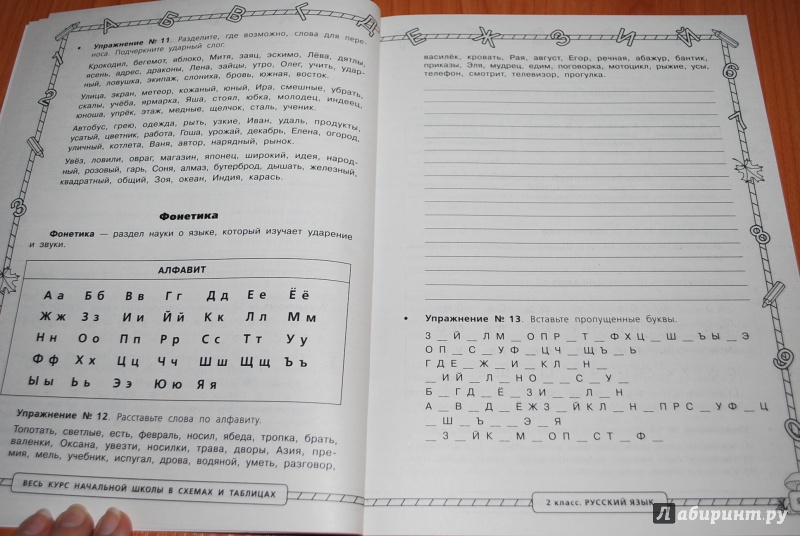 А Б В Г Д
• Упражнение № 11. Разделите, где возможно, слова для пере-
носа. Подчеркните ударный слог.
Крокодил, бегемот, яблоко, Митя, заяц, эскимо, Лёва, дятлы,
ясень, адрес, драконы, Лена, зайцы, утро, Олег, учить, удар-
ный, ловушка, экипаж, слониха, бровь, южная, восток.
Улица, экран, метеор, кожаный, юный, Ира, смешные, убрать,
скалы, учёба, ярмарка, Яша, стоял, юбка, молодец, индеец,
юноша, упрёк, этаж, медные, щелчок, сталь, ученик.
Автобус, грею, одежда, рыть, узкие, Иван, удаль, продукты,
усатый, цветник, работа, Гоша, урожай, декабрь, Елена, огород,
уличный, котлета, Ваня, автор, нарядный, рынок.
Увёз, ловили, овраг, магазин, японец, широкий, идея, народ-
ный, розовый, гарь, Соня, алмаз, бутерброд, дышать, железный,
квадратный, общий, Зоя, океан, Индия, карась.
Фонетика
Фонетика — раздел науки о языке, который изучает ударение
и звуки.
АЛФАВИТ
Аа Бб Вв Гг Дд Ее Ёё
Жж Зз Ии Йй Кк Лл Мм
Нн Оо Пп Рр Сс Тт Уу
Фф Хх Цц Чч Шш Щщ Ъъ
Ыы Ьь Ээ Юю Яя
Упражнение № 12. Расставьте слова по алфавиту.
Топотать, светлые, есть, февраль, носил, ябеда, тропка, брать,
валенки, Оксана, увезти, носилки, трава, дворы, Азия, пре-
мия, мель, учебник, испугал, дрова, водяной, уметь, разговор,
ВЕСЬ КУРС НАЧАЛЬНОЙ ШКОЛЫ В СХЕМАХ И ТАБЛИЦАХ
1
2
3
Е Ж З И Й
василёк, кровать, Рая, август, Егор, речная, абажур, бантик,
приказы, Эля, мудрец, едим, поговорка, мотоцикл, рыжие, усы,
телефон, смотрит, телевизор, прогулка.
• Упражнение № 13. Вставьте пропущенные буквы.
З _ Й _ ЛМ _ ОПР _ Т _ ФХЦ _ Ш _ ЪЫ _ Э
ОП _ С _ УФ _ ЦЧ _ ЩЪ _ Ь
ГДЕ _ Ж _ И _ КЛ _ Н _
_ ИЙ _ Л _ НО _ _ С _ У _
Б _ ГД _ Ё _ ЗИ _ _ Л _ Н
А _ В _ Д _ ЁЖЗ _ ЙКЛ _ Н _ ПРС _ УФ _ Ц
_ Ш _ Ъ _ _ Э _ Я
_ З _ ЙК _ М _ ОП _ СТ _ Ф _
2 класс. РУССКИЙ ЯЗЫК
6
7
8
9
0
Лабиринт.ру